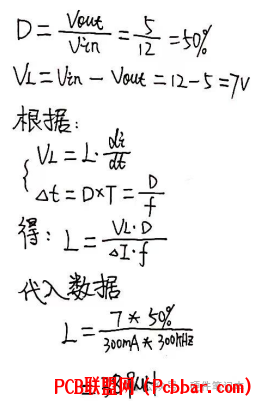 D = Vout/Vin = 5/12 = 50%
VL = Vin - Vout = 12 - 5 = 7V
根据:
{ VL = L · di/dt
Δt = D×T = D/f
得: L = VL·D/ΔI·f
代入数据
L = 7 * 50%/300mA * 300kHz
PCB联盟网 (Pcbbar.com)